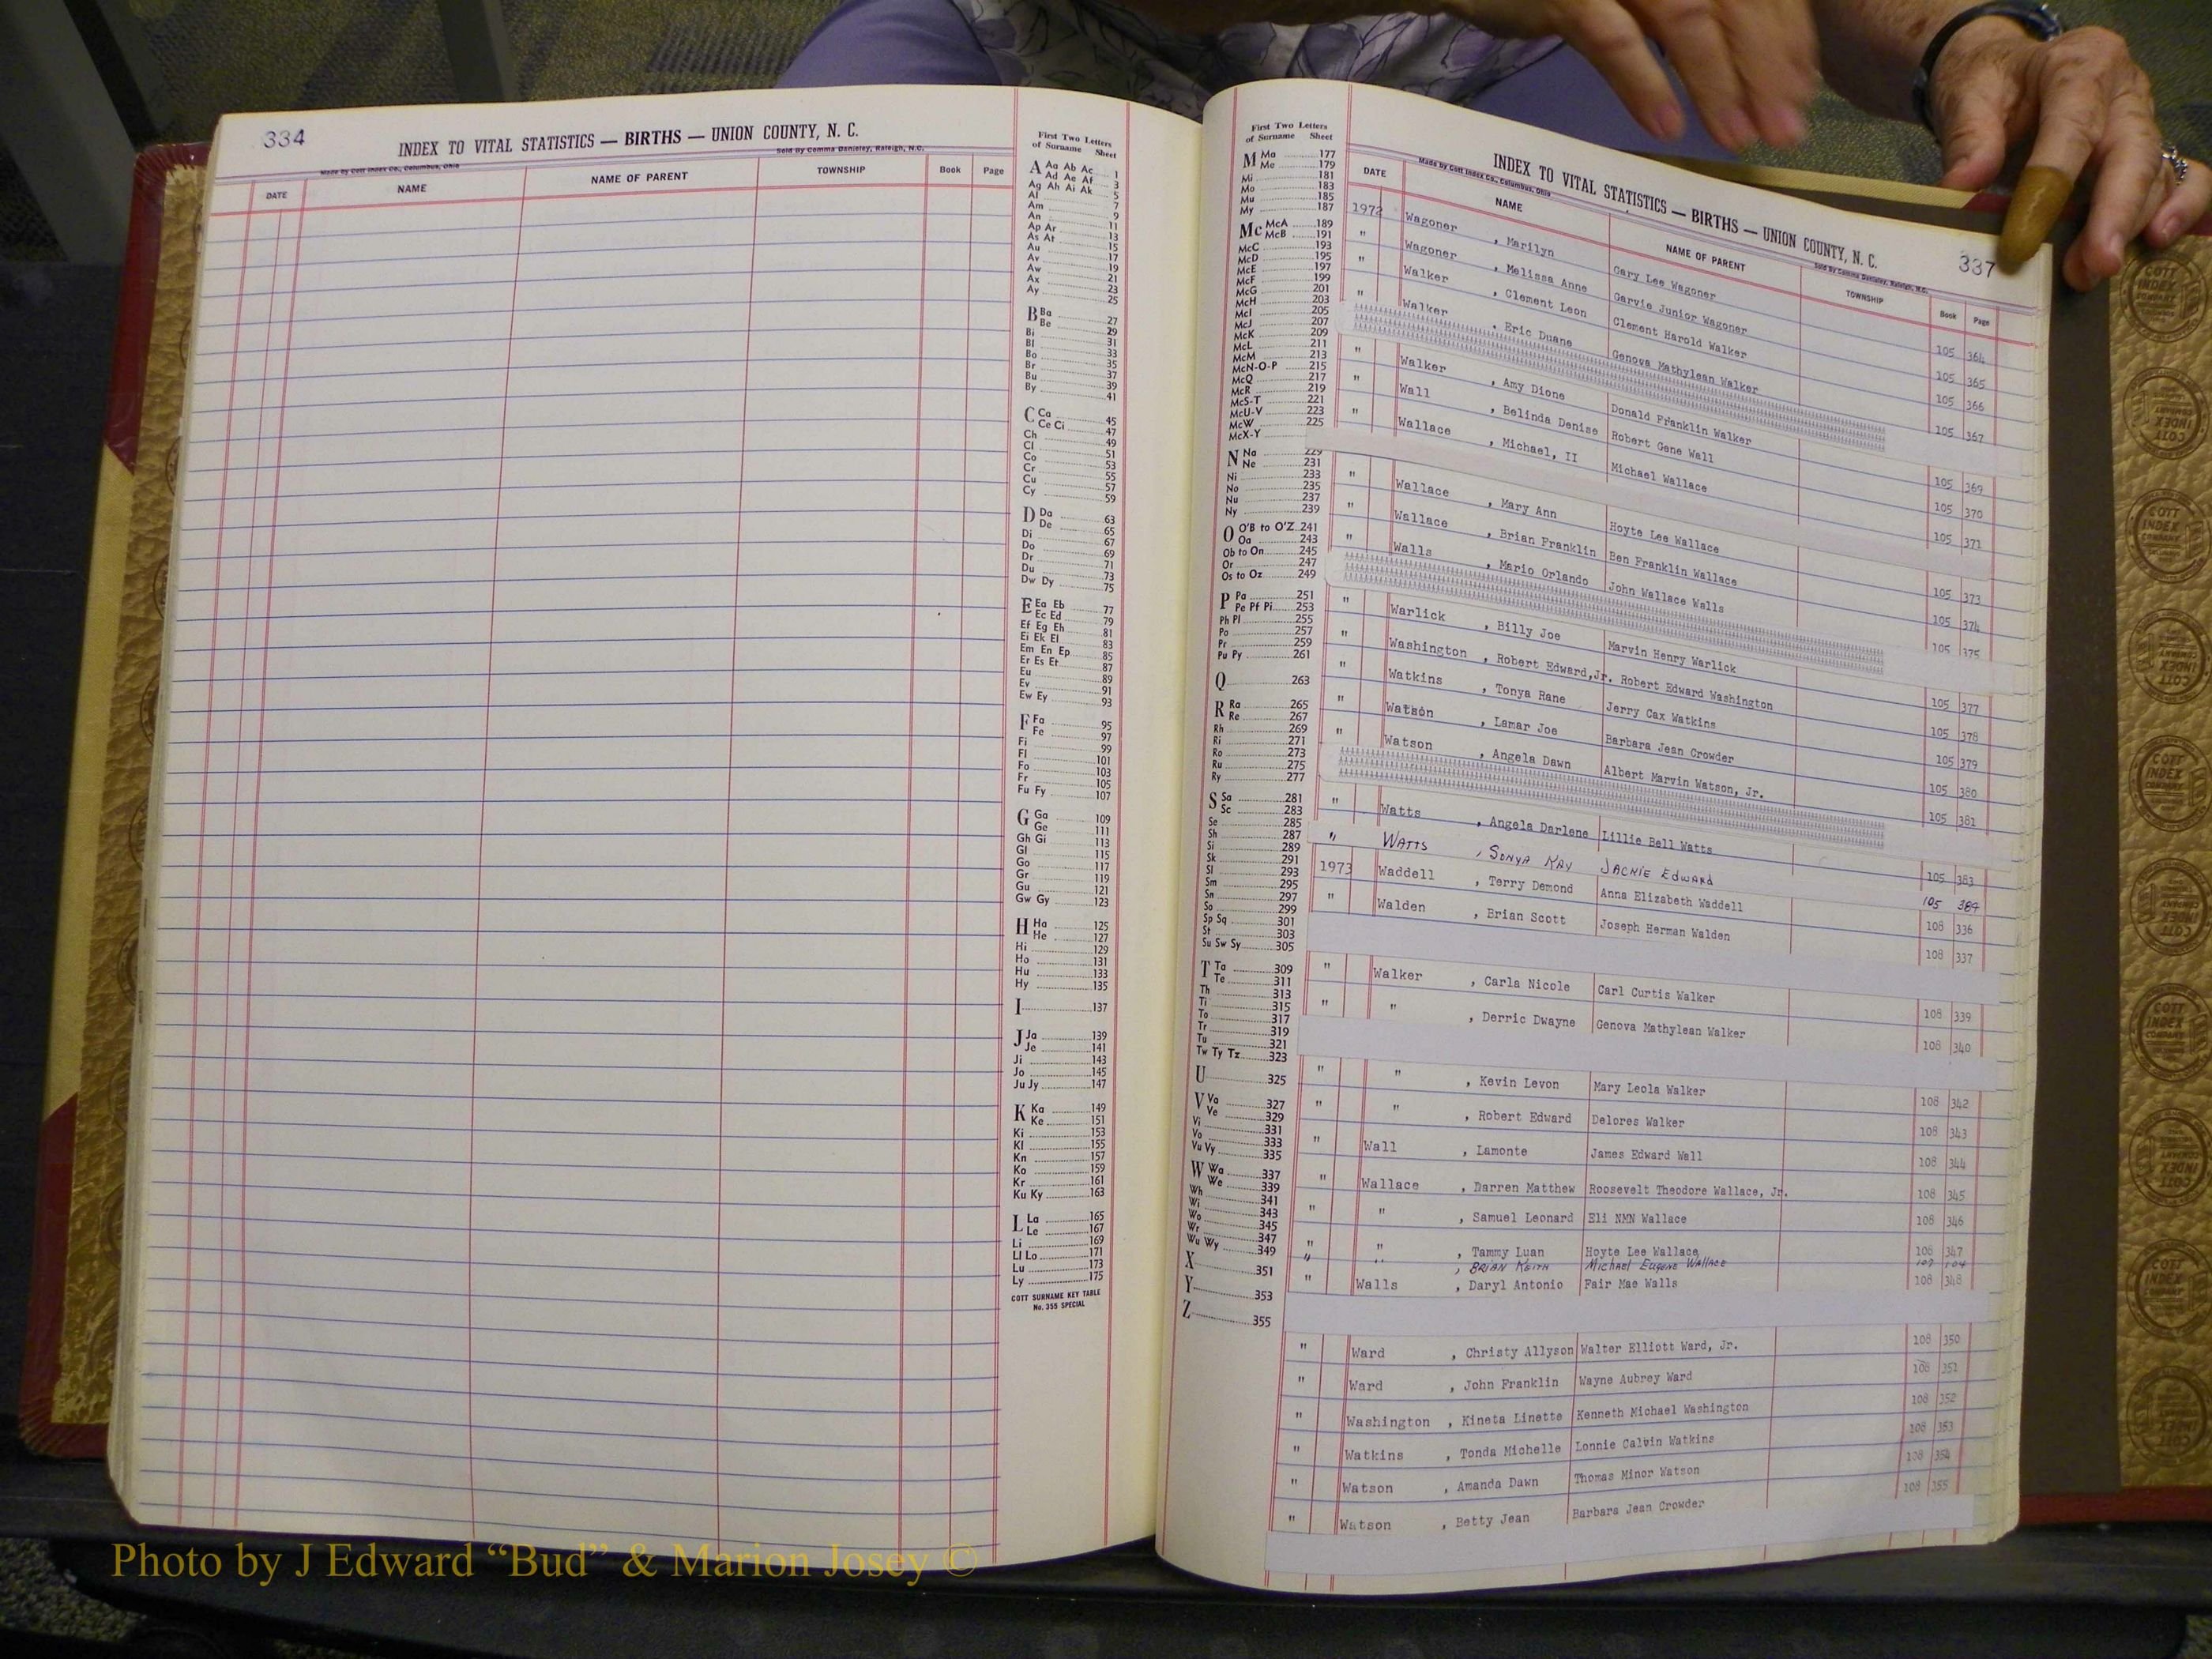 334
INDEX TO VITAL STATISTICS — BIRTHS — UNION COUNTY, N. C.
Made by Cott Index Co., Columbus, Ohio
Sold by Comma Danieley, Raleigh, N.C.
DATE NAME NAME OF PARENT TOWNSHIP Book Page
First Two Letters
of Surname Sheet
A Aa Ab Ac 1
Ad Ae Af 3
Ag Ah Ai Ak 5
Al 7
Am 9
An 11
Ap Ar 13
As At 15
Au 17
Av 19
Aw 21
Ax 23
Ay 25
B Ba 27
Be 29
Bi 31
Bl 33
Bo 35
Br 37
Bu 39
By 41
C Ca 45
Ce Ci 47
Ch 49
Cl 51
Co 53
Cr 55
Cu 57
Cy 59
D Da 63
De 65
Di 67
Do 69
Dr 71
Du 73
Dw Dy 75
E Ea Eb 77
Ec Ed 79
Ef Eg Eh 81
Ei Ek El 83
Em En Ep 85
Er Es Et 87
Eu 89
Ev 91
Ew Ey 93
F Fa 95
Fe 97
Fi 99
Fl 101
Fo 103
Fr 105
Fu Fy 107
G Ga 109
Ge 111
Gh Gi 113
Gl 115
Go 117
Gr 119
Gu 121
Gw Gy 123
H Ha 125
He 127
Hi 129
Ho 131
Hu 133
Hy 135
I 137
J Ja 139
Je 141
Ji 143
Jo 145
Ju Jy 147
K Ka 149
Ke 151
Ki 153
Kl 155
Kn 157
Ko 159
Kr 161
Ku Ky 163
L La 165
Le 167
Li 169
Ll Lo 171
Lu 173
Ly 175
COTT SURNAME KEY TABLE
No. 355 SPECIAL
First Two Letters
of Surname Sheet
M Ma 177
Me 179
Mi 181
Mo 183
Mu 185
My 187
Mc McA 189
McB 191
McC 193
McD 195
McE 197
McF 199
McG 201
McH 203
McI 205
McJ 207
McK 209
McL 211
McM 213
McN-O-P 215
McQ 217
McR 219
McS-T 221
McU-V 223
McW 225
McX-Y
N Na 229
Ne 231
Ni 233
No 235
Nu 237
Ny 239
O O'B to O'Z 241
Oa 243
Ob to On 245
Or 247
Os to Oz 249
P Pa 251
Pe Pf Pi 253
Ph Pl 255
Po 257
Pr 259
Pu Py 261
Q 263
R Ra 265
Re 267
Rh 269
Ri 271
Ro 273
Ru 275
Ry 277
S Sa 281
Sc 283
Se 285
Sh 287
Si 289
Sk 291
Sl 293
Sm 295
Sn 297
So 299
Sp Sq 301
St 303
Su Sw Sy 305
T Ta 309
Te 311
Th 313
Ti 315
To 317
Tr 319
Tu 321
Tw Ty Tz 323
U 325
V Va 327
Ve 329
Vi 331
Vo 333
Vu Vy 335
W Wa 337
We 339
Wh 341
Wi 343
Wo 345
Wr 347
Wu Wy 349
X 351
Y 353
Z 355
INDEX TO VITAL STATISTICS — BIRTHS — UNION COUNTY, N. C.
337
Made by Cott Index Co., Columbus, Ohio
Sold by Comma Danieley, Raleigh, N.C.
DATE NAME NAME OF PARENT TOWNSHIP Book Page
1972 Wagoner , Marilyn Gary Lee Wagoner 105 364
" Wagoner , Melissa Anne Garvie Junior Wagoner 105 365
" Walker , Clement Leon Clement Harold Walker 105 366
" Walker , Eric Duane Genova Mathylean Walker 105 367
" Walker , Amy Dione Donald Franklin Walker 105 369
" Wall , Belinda Denise Robert Gene Wall 105 370
" Wallace , Michael, II Michael Wallace 105 371
" Wallace , Mary Ann Hoyte Lee Wallace 105 373
" Wallace , Brian Franklin Ben Franklin Wallace 105 374
" Walls , Mario Orlando John Wallace Walls 105 375
" Warlick , Billy Joe Marvin Henry Warlick 105 377
" Washington , Robert Edward,Jr. Robert Edward Washington 105 378
" Watkins , Tonya Rane Jerry Cax Watkins 105 379
" Watson , Lamar Joe Barbara Jean Crowder 105 380
" Watson , Angela Dawn Albert Marvin Watson, Jr. 105 381
" Watts , Angela Darlene Lillie Bell Watts 105 383
" WATTS , SONYA KAY JACKIE EDWARD 105 384
1973 Waddell , Terry Demond Anna Elizabeth Waddell 108 336
" Walden , Brian Scott Joseph Herman Walden 108 337
" Walker , Carla Nicole Carl Curtis Walker 108 339
" " , Derric Dwayne Genova Mathylean Walker 108 340
" " , Kevin Levon Mary Leola Walker 108 342
" " , Robert Edward Delores Walker 108 343
" Wall , Lamonte James Edward Wall 108 344
" Wallace , Darren Matthew Roosevelt Theodore Wallace, Jr. 108 345
" " , Samuel Leonard Eli NMN Wallace 108 346
" " , Tammy Luan Hoyte Lee Wallace 108 347
" " , BRIAN KEITH Michael Eugene Wallace 107 104
" Walls , Daryl Antonio Fair Mae Walls 108 348
" Ward , Christy Allyson Walter Elliott Ward, Jr. 108 350
" Ward , John Franklin Wayne Aubrey Ward 108 351
" Washington , Kineta Linette Kenneth Michael Washington 108 352
" Watkins , Tonda Michelle Lonnie Calvin Watkins 108 353
" Watson , Amanda Dawn Thomas Minor Watson 108 354
" Watson , Betty Jean Barbara Jean Crowder 108 355
COTT INDEX COMPANY
Photo by J Edward “Bud” & Marion Josey ©